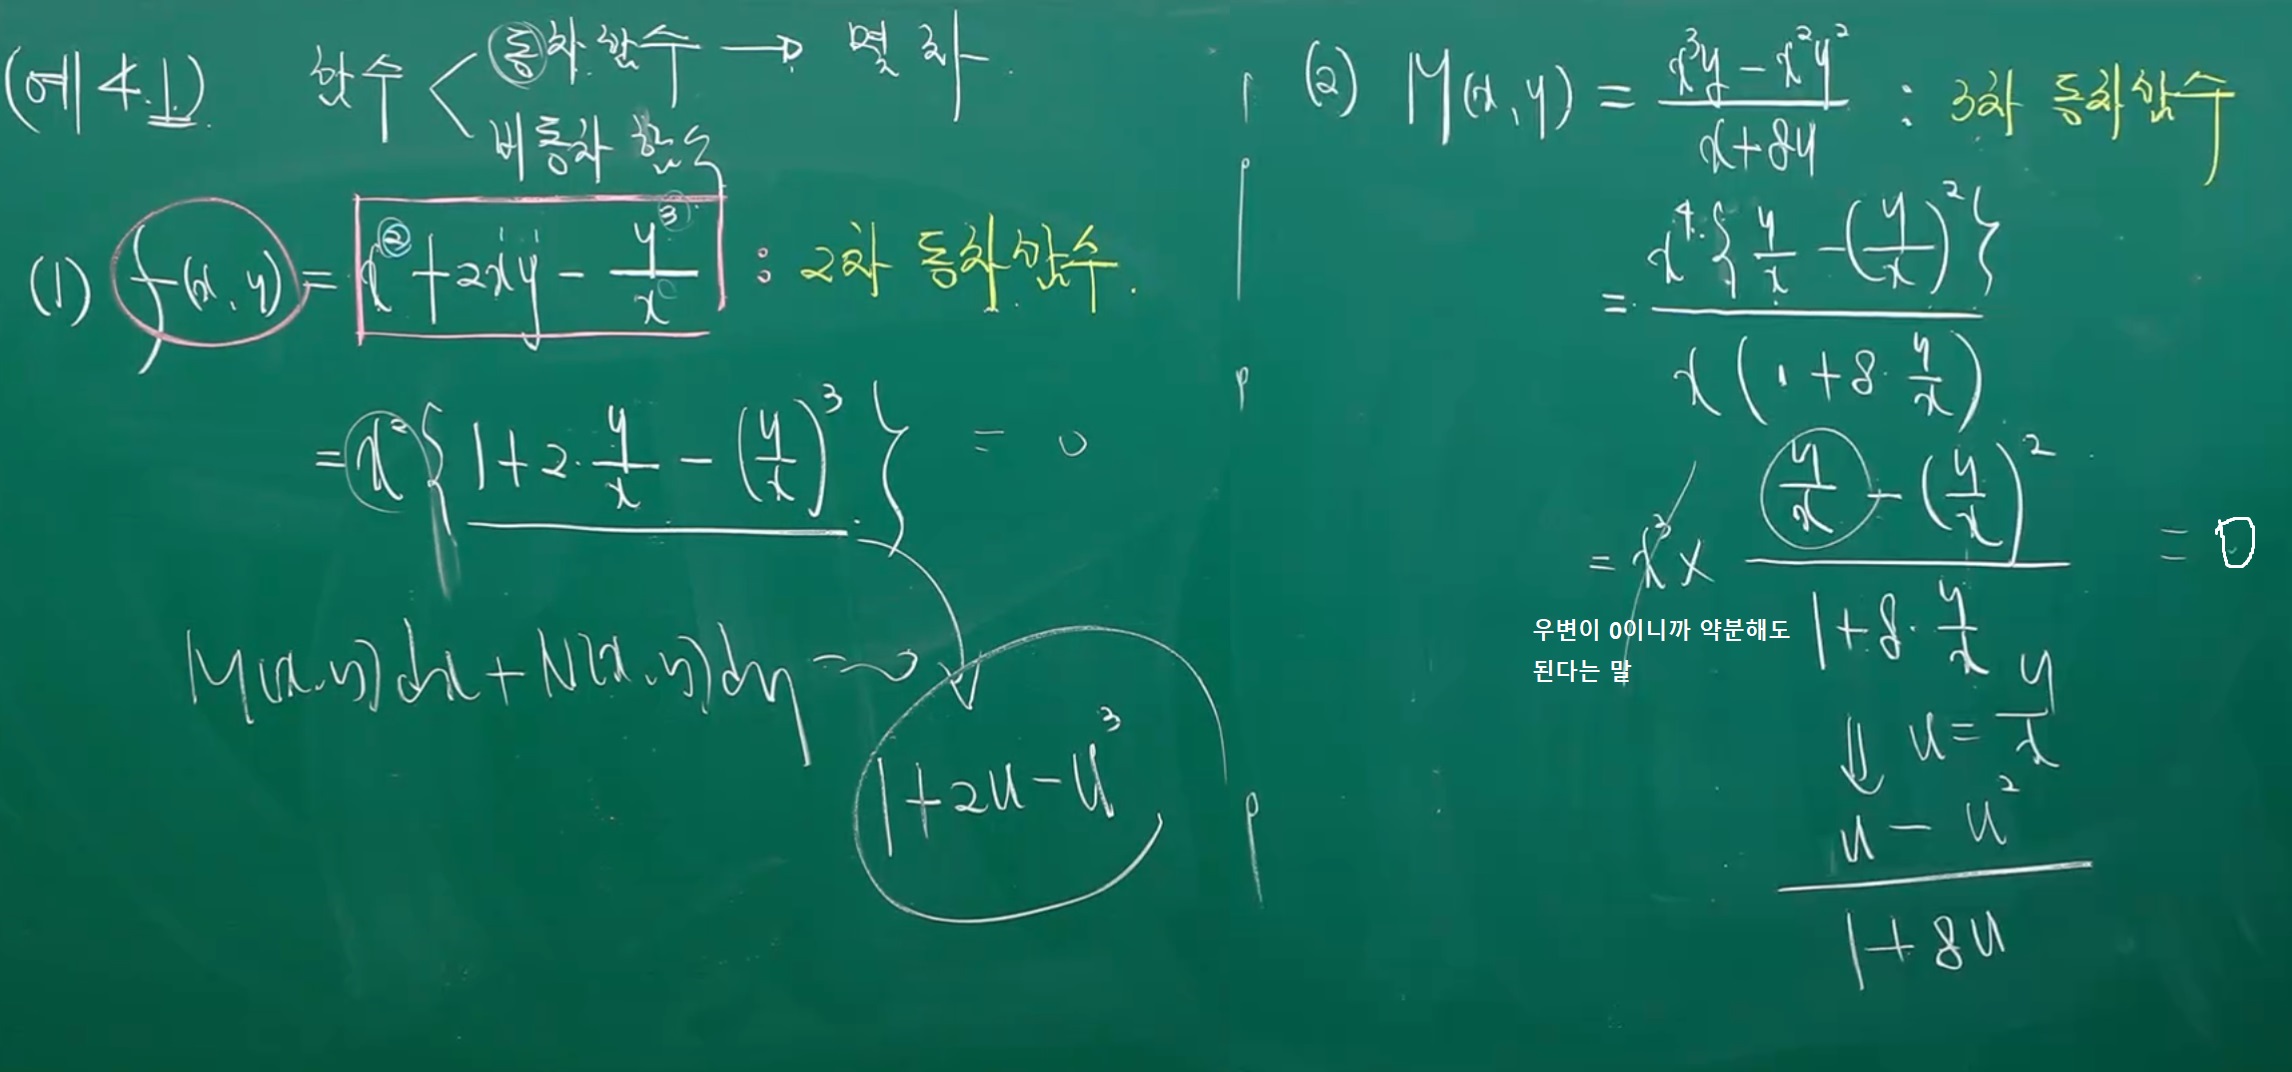 (예 4.1) 함수 < 동차함수 → 몇 차
비동차 함수
(1) f(x, y) = x² + 2xy - y³/x : 2차 동차함수.
= x² { 1 + 2·y/x - (y/x)³ } = 0
M(x, y)dx + N(x, y)dy = 0
1 + 2u - u³
(2) M(x, y) = (x³y - x²y²)/(x + 8y) : 3차 동차함수
= x⁴·{ y/x - (y/x)² } / x(1 + 8·y/x)
= x³ × (y/x - (y/x)²)/(1 + 8·y/x) = 0
우변이 0이니까 약분해도
된다는 말
⇓ u = y/x
(u - u²)/(1 + 8u)